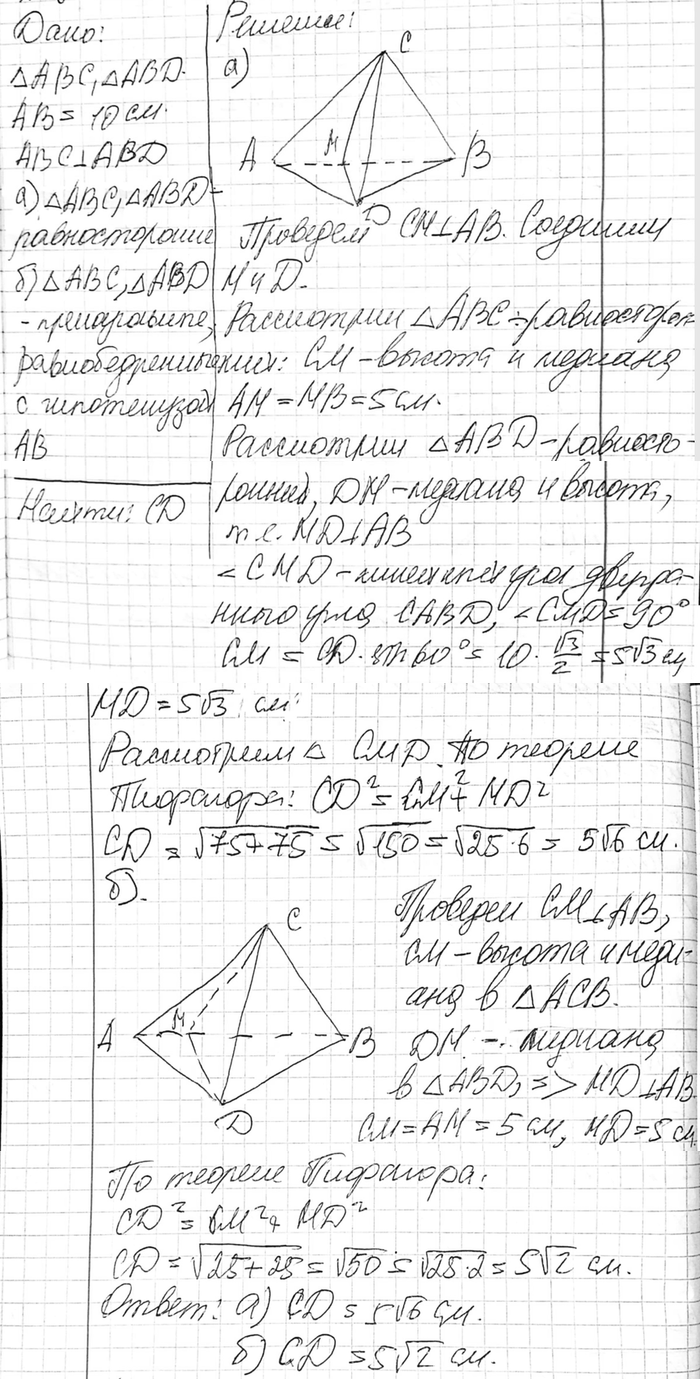 Дано:
△ABC, △ABD.
AB = 10 см.
ABC⊥ABD
а) △ABC, △ABD -
равносторонние
б) △ABC, △ABD
- прямоугольные,
равнобедренные
с гипотенузой
AB
Найти: CD
Решение:
а)
C
A
M
B
D
Проведем CM⊥AB. Соединим
M и D.
Рассмотрим △ABC - равносторон-
ний: CM - высота и медиана
AM = MB = 5 см.
Рассмотрим △ABD - равносто-
ронний, DM - медиана и высота,
т.е. MD⊥AB
∠CMD - линейный угол двугра-
нного угла CABD, ∠CMD = 90°
CM = CD · sin 60° = 10 · √3/2 = 5√3 см
MD = 5√3 см.
Рассмотрим △ CMD. По теореме
Пифагора: CD² = CM² + MD²
CD = √75+75 = √150 = √25·6 = 5√6 см.
б).
C
A
M
B
D
Проведем CM⊥AB,
CM - высота и меди-
ана в △ACB.
DM - медиана
в △ABD, => MD⊥AB.
CM = AM = 5 см, MD = 5 см
По теореме Пифагора:
CD² = CM² + MD²
CD = √25+25 = √50 = √25·2 = 5√2 см.
Ответ: а) CD = 5√6 см.
б) CD = 5√2 см.